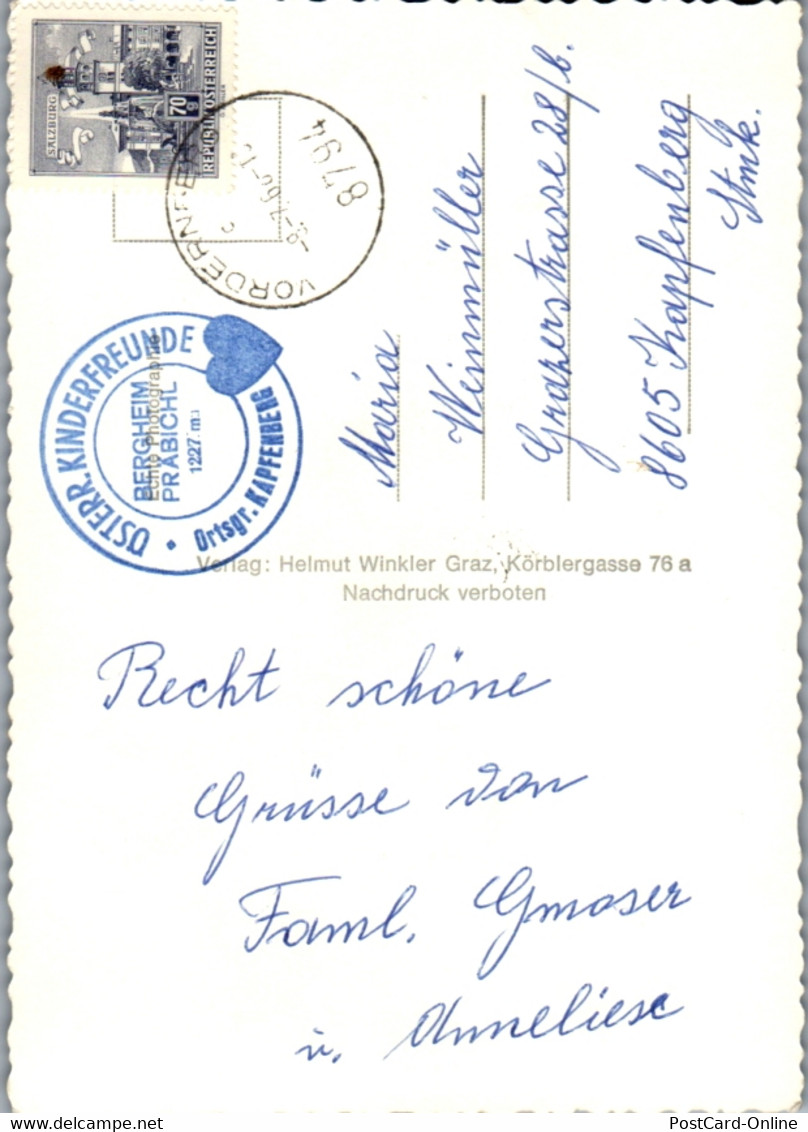 SALZBURG
70 g
REPUBLIK ÖSTERREICH
8794
VORDERNBERG
c
ÖSTERR. KINDERFREUNDE
BERGHEIM
PRÄBICHL
1227 m
Ortsgr. KAPFENBERG
Echte Photographie
Maria
Weinmüller
Grazerstrasse 28/b.
8605 Kapfenberg
Stmk.
Verlag: Helmut Winkler Graz, Körblergasse 76 a
Nachdruck verboten
Recht schöne
Grüsse von
Faml. Gmoser
u. Anneliese
www.delcampe.net
PostCard-Online